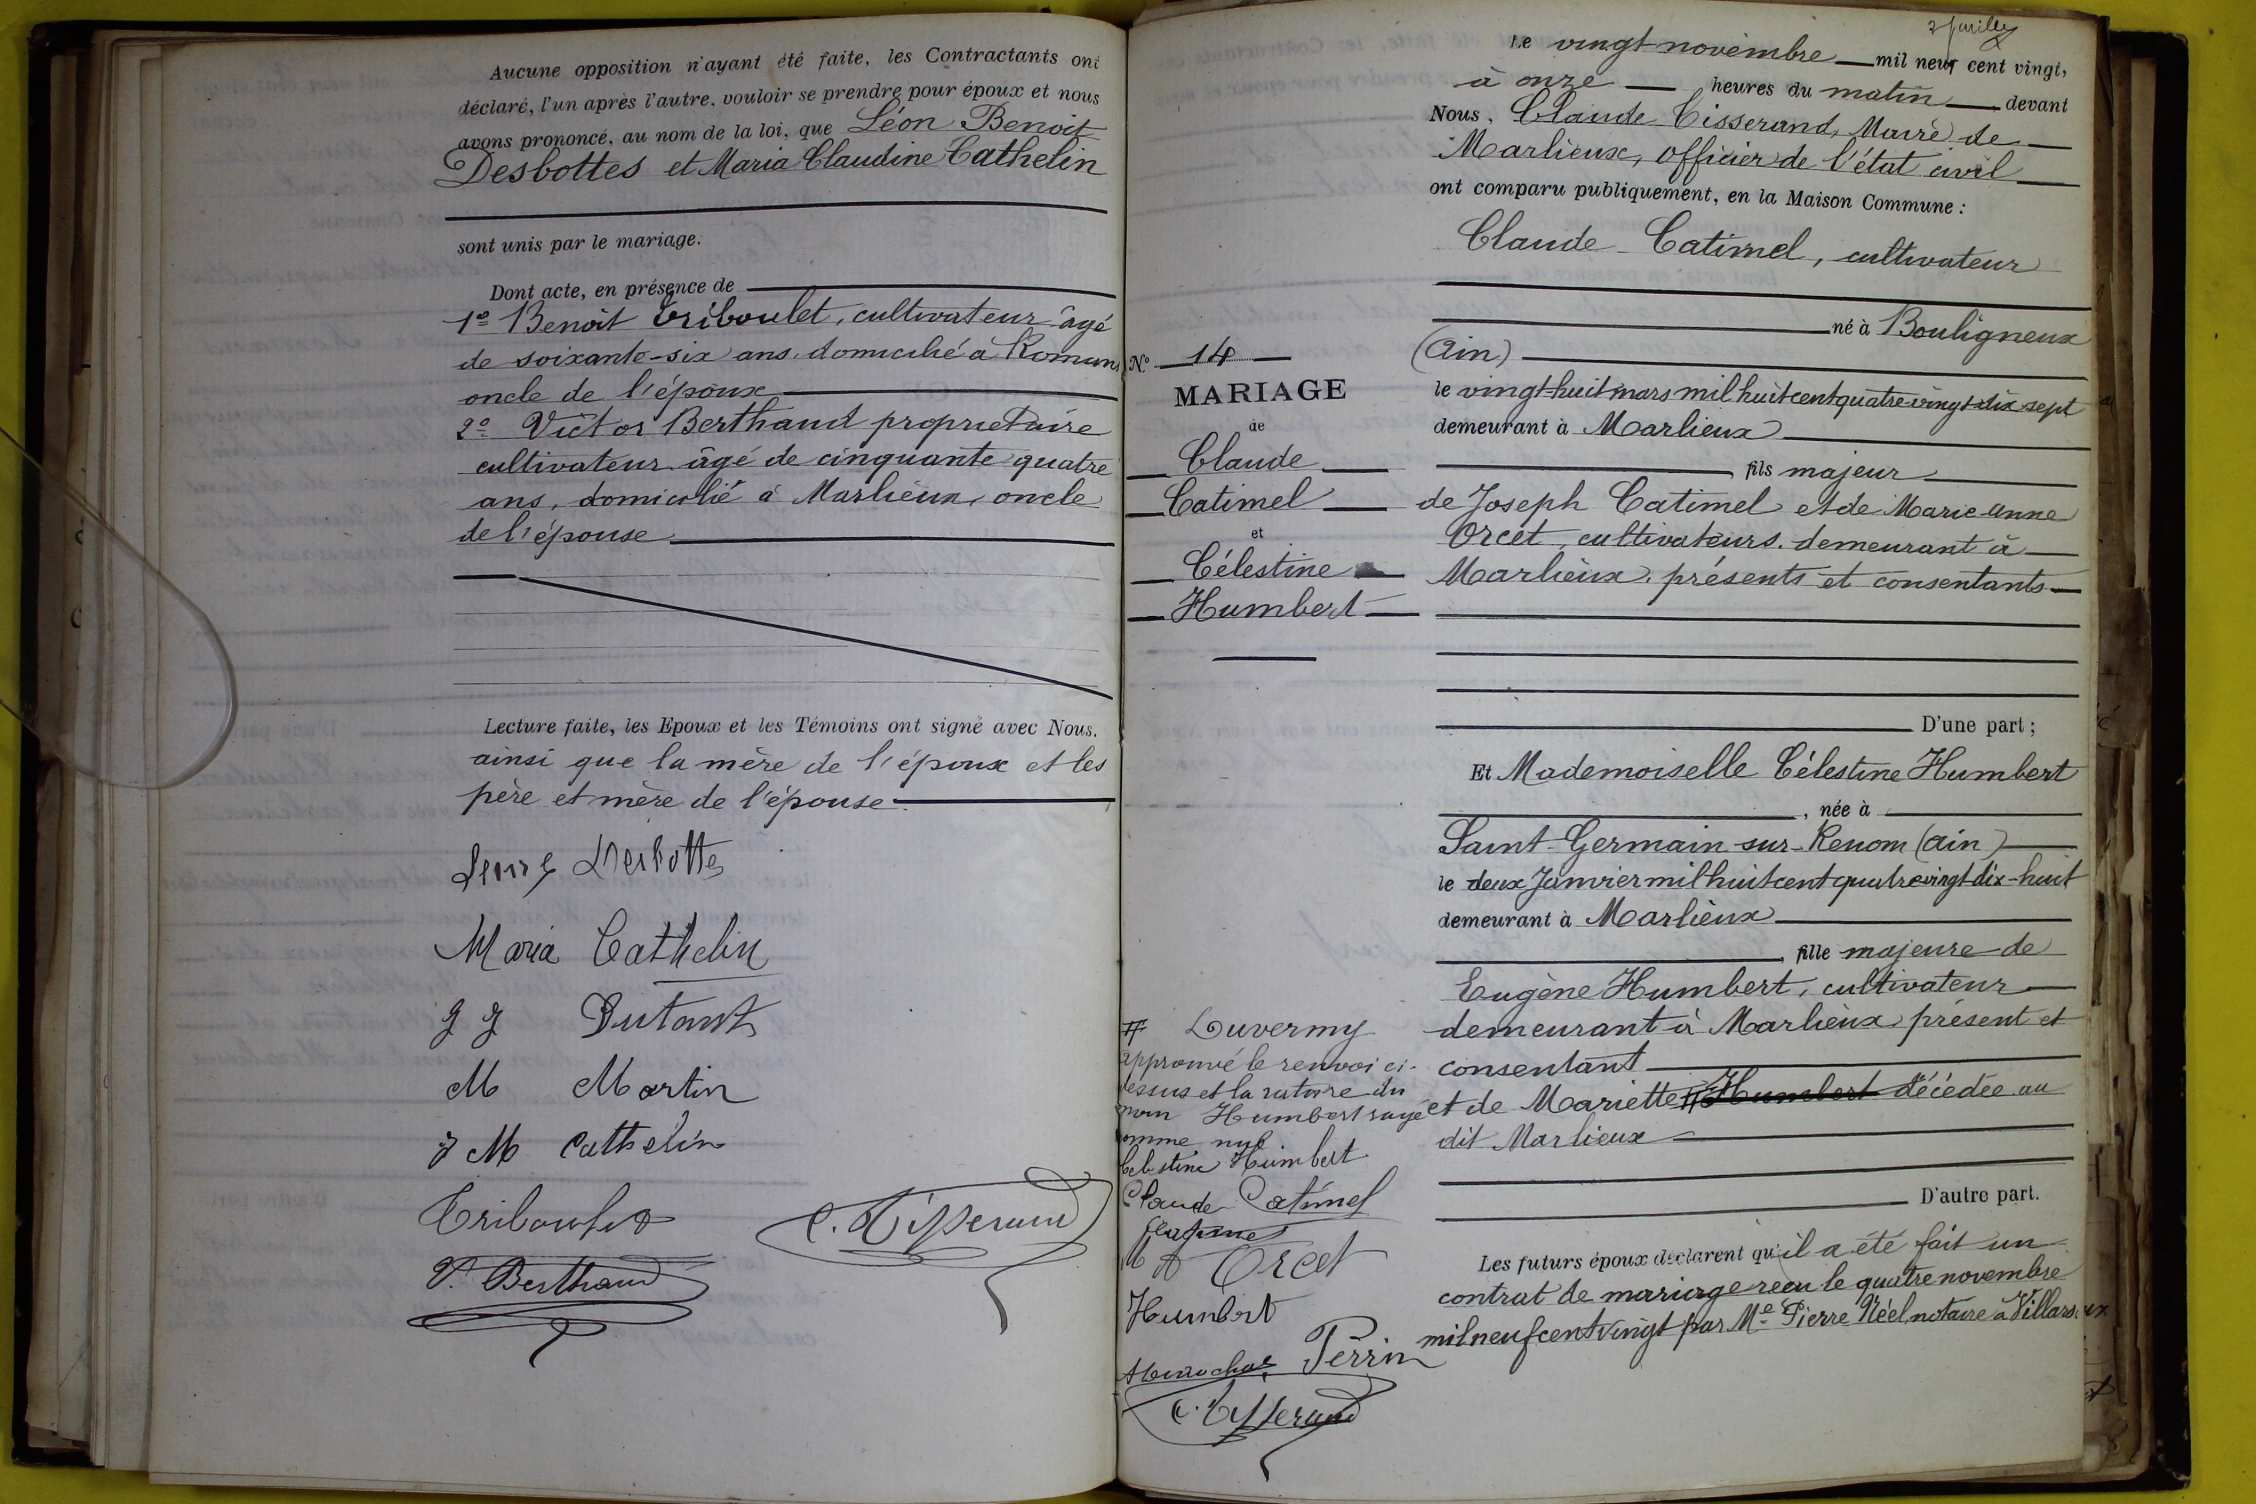 Aucune opposition n'ayant été faite, les Contractants ont
déclaré, l'un après l'autre, vouloir se prendre pour époux et nous
avons prononcé, au nom de la loi, que Léon Benoit
Desbottes et Maria Claudine Cathelin
sont unis par le mariage.
Dont acte, en présence de
1º Benoit Triboulet, cultivateur âgé
de soixante-six ans, domicilié à Romans
oncle de l'époux
2º Victor Berthaud propriétaire
cultivateur âgé de cinquante quatre
ans, domicilié à Marlieux, oncle
de l'épouse
Lecture faite, les Epoux et les Témoins ont signé avec Nous.
ainsi que la mère de l'époux et les
père et mère de l'épouse
Desbottes
Maria Cathelin
M Martin
J M Cathelin
Triboulet
C. Tisserand
V. Berthaud
Nº 14
MARIAGE
de
Claude
Catimel
et
Célestine
Humbert
# Duvermy
approuvé le renvoi ci-
dessus et la rature du
nom Humbert rayé
comme nul.
Célestine Humbert
Claude Catimel
Orcet
Humbert
Perrin
C. Tisserand
Le vingt novembre mil neuf cent vingt,
à onze heures du matin devant
Nous, Claude Tisserand, Maire de
Marlieux, officier de l'état civil
ont comparu publiquement, en la Maison Commune :
Claude Catimel, cultivateur
né à Bouligneux
(Ain)
le vingt-huit mars mil huit cent quatre-vingt-dix sept
demeurant à Marlieux
fils majeur
de Joseph Catimel et de Marie-Anne
Orcet, cultivateurs demeurant à
Marlieux, présents et consentants
D'une part ;
Et Mademoiselle Célestine Humbert
, née à
Saint-Germain-sur-Renom (Ain)
le deux Janvier mil huit cent quatre vingt dix-huit
demeurant à Marlieux
fille majeure de
Eugène Humbert, cultivateur
demeurant à Marlieux, présent et
consentant
et de Mariette # Humbert décédée au
dit Marlieux
D'autre part.
Les futurs époux déclarent qu'il a été fait un
contrat de mariage reçu le quatre novembre
mil neuf cent vingt par Me Pierre Néel, notaire à Villars